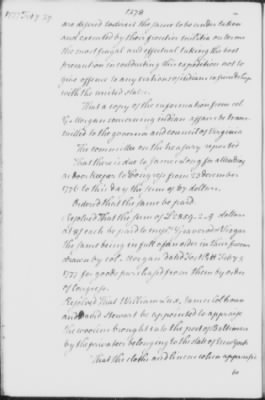 1378
1777 Feby 27
are desired to direct the same to be undertaken
and executed by their frontier militia on terms
the most frugal and effectual taking the best
precaution in conducting this expedition not to
give offence to any nations of indians in friendship
with the united states.
That a copy of the information from col
G. Morgan concerning indian affairs be trans
mitted to the governor and council of Virginia
The committee on the treasury reported
That there is due to James long for attending
as doorkeeper to Congress from 23 december
1776 to this day the sum of 67 dollars.
Ordered that the same be paid.
Resolved That the sum of dollars
be paid to mess.rs
the same being in full of an order in their favour
drawn by col. Morgan dated fort Pitt
1777 for goods purchased from them by order
of Congress.
Resolved That William Lux, James Calhoun
and David Stewart be appointed to appraise
the woolens brought into the port of Baltimore
by the privateer belonging to the state of Newyork
That the cloths and linens when appraised
be